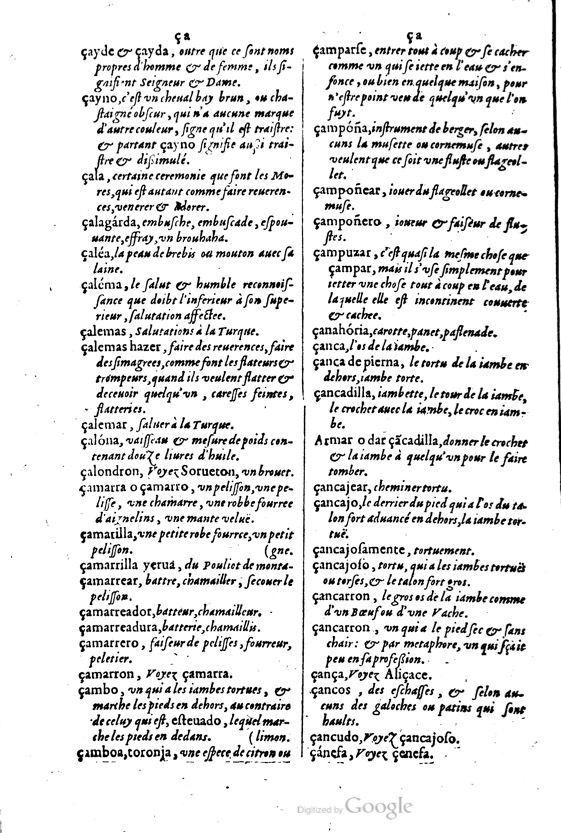 ça
çayde & çayda, outre que ce sont noms
propres d'homme & de femme, ils si-
gnifient Seigneur & Dame.
çayno, c'est vn cheual bay brun, ou cha-
staigné obscur, qui n'a aucune marque
d'autre couleur, signe qu'il est traistre:
& partant çayno signifie aussi trai-
stre & dissimulé.
çala, certaine ceremonie que font les Mo-
res, qui est autant comme faire reueren-
ces, venerer & adorer.
çalagárda, embusche, embuscade, espou-
uante, effray, vn brouhaha.
çaléa, la peau de brebis ou mouton auec sa
laine.
çaléma, le salut & humble reconnois-
sance que doibt l'inferieur à son supe-
rieur, salutation affectee.
çalemas, Salutations à la Turque.
çalemas hazer, faire des reuerences, faire
des simagrees, comme font les flateurs &
trompeurs, quand ils veulent flatter &
deceuoir quelqu'vn, caresses feintes,
flatteries.
çalemar, saluer à la Turque.
çalóna, vaisseau & mesure de poids con-
tenant douze liures d'huile.
çalondron, Voyez Sorueton, vn brouet.
çamarra o çamarro, vn pelisson, vne pe-
lisse, vne chamarre, vne robbe fourree
d'aignelins, vne mante veluë.
çamarilla, vne petite robe fourree, vn petit
pelisson. (gne.
çamarrilla yerua, du Pouliot de monta-
çamarrear, battre, chamailler, secouer le
pelisson.
çamarreador, batteur, chamailleur.
çamarreadura, batterie, chamaillis.
çamarrero, faiseur de pelisses, fourreur,
peletier.
çamarron, Voyez çamarra.
çambo, vn qui a les iambes tortues, &
marche les pieds en dehors, au contraire
de celuy qui est, esteuado, lequel mar-
che les pieds en dedans. (limon.
çamboa, toronja, vne espece de citron ou
ça
çamparse, entrer tout à coup & se cacher
comme vn qui se iette en l'eau & s'en-
fonce, ou bien en quelque maison, pour
n'estre point veu de quelqu'vn que l'on
fuyt.
çampóña, instrument de berger, selon au-
cuns la musette ou cornemuse, autres
veulent que ce soit vne fluste ou flageol-
let.
çampoñear, iouer du flageollet ou corne-
muse.
çampoñero, ioueur & faiseur de flu-
stes.
çampuzar, c'est quasi la mesme chose que
çampar, mais il s'vse simplement pour
ietter vne chose tout à coup en l'eau, de
laquelle elle est incontinent couuerte
& cachee.
çanahória, carotte, panet, pastenade.
çanca, l'os de la iambe.
çanca de pierna, le tortu de la iambe en
dehors, iambe torte.
çancadilla, iambette, le tour de la iambe,
le crochet auec la iambe, le croc en iam-
be.
Armar o dar çãcadilla, donner le crochet
& la iambe à quelqu'vn pour le faire
tomber.
çancajear, cheminer tortu.
çancajo, le derrier du pied qui a l'os du ta-
lon fort aduancé en dehors, la iambe tor-
tuë.
çancajosamente, tortuement.
çancajoso, tortu, qui a les iambes tortuës
ou torses, & le talon fort gros.
çancarron, le gros os de la iambe comme
d'vn Bœuf ou d'vne Vache.
çancarron, vn qui a le pied sec & sans
chair: & par metaphore, vn qui sçait
peu en sa profession.
çança, Voyez Aliçace.
çancos, des eschasses, & selon au-
cuns des galoches ou patins qui sont
haults.
çancudo, Voyez çancajoso.
çánefa, Voyez çenefa.
Digitized by Google